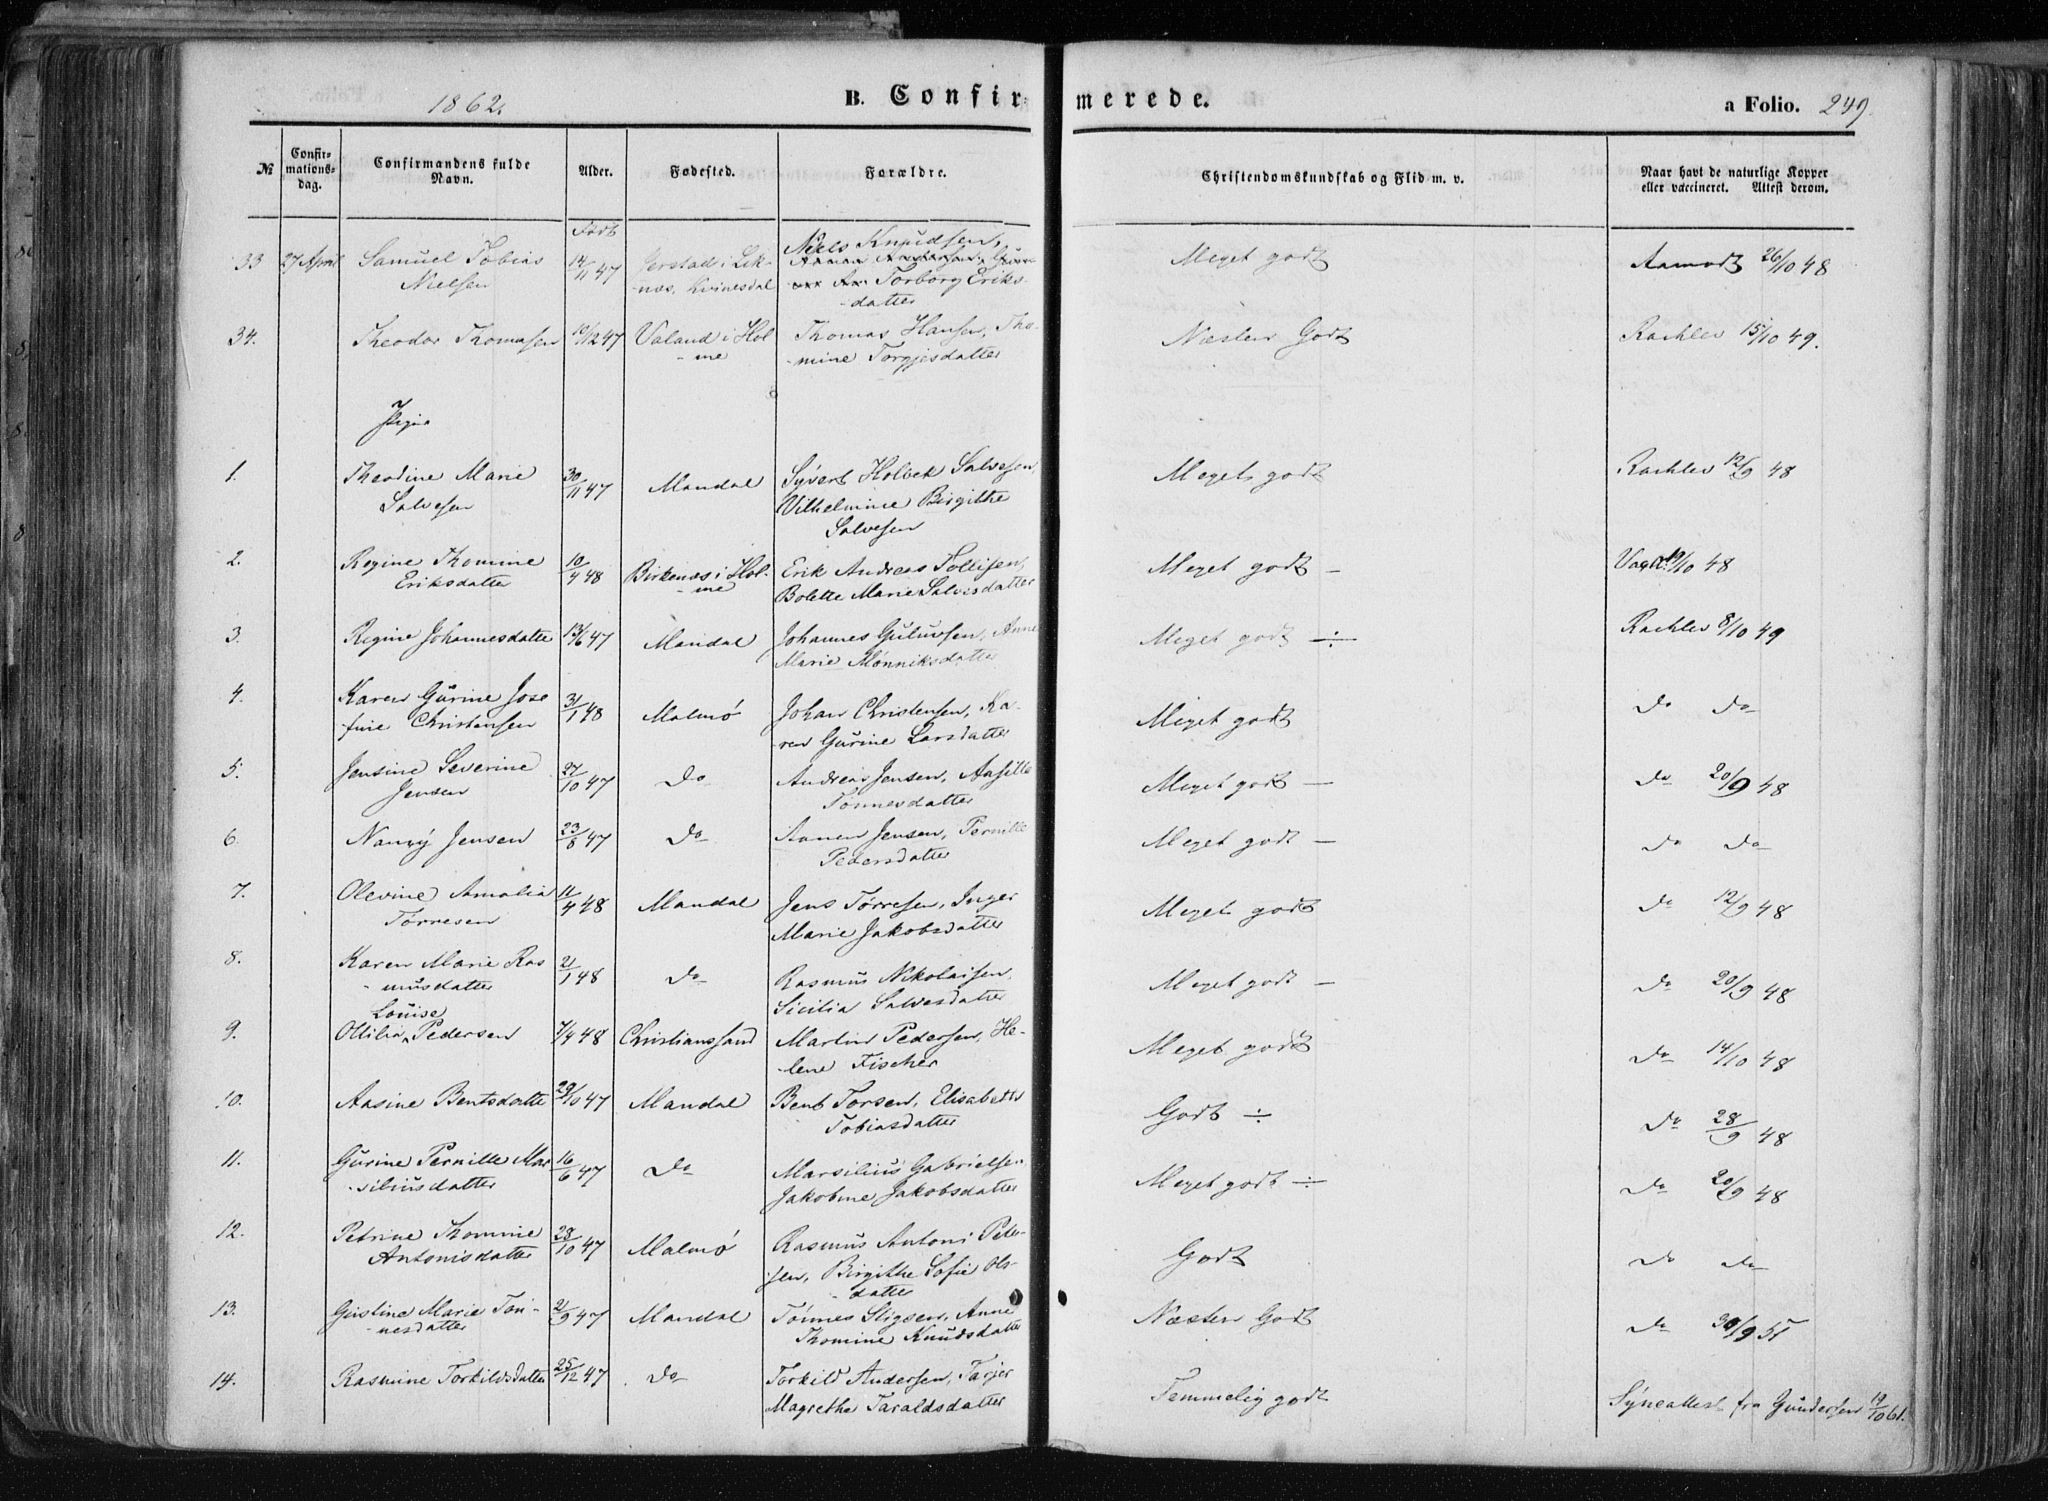 1862.
B. Confirmerede.
a Folio. 249.
№
Confir-
mations-
dag.
Confirmandens fulde
Navn.
Alder.
Fødested.
Forældre.
Christendomskundskab og Flid m. v.
Naar havt de naturlige Kopper
eller vaccineret. Attest derom.
Født
33 27 April Samuel Tobias 14/11 47 Jerstad i Lik- Niels Knudsen, Meget godt Aamodt 26/10 48
Nielsen -næs, Kvinesdal Torborg Eriks-
-datter
34. Theodor Thomasen 10/12 47 Valand i Hol- Thomas Hansen, Tho- Næsten Godt Rachlev 15/10 49.
-me -mine Torgjesdatter
Piger
1. Theodine Marie 30/11 47 Mandal Syvert Holbek Salvesen, Meget godt Rachlev 12/9 48
Salvesen Vilhelmine Birgithe
Salvesen
2. Regine Thomine 10/4 48 Birkenæs i Hol- Erik Andreas Tollisen, Meget godt — 19/10 48
Eriksdatter -me Bolette Marie Salvesdatter
3. Regine Johannesdatter 13/6 47 Mandal Johannes Guluvsen, Anne Meget godt ÷ Rachlev 8/10 49
Marie Mønniksdatter
4. Karen Gurine Jose 31/1 48 Malmø Johan Christensen, Ka- Meget godt Do Do
fine Christensen -ren Gurine Larsdatter
5. Jensine Severine 27/10 47 Do Andreas Jensen, Aasille Meget godt — Do 20/9 48
Jensen Tønnesdatter
6. Nanny Jensen 23/8 47 Do Aanen Jensen, Pernille Meget godt — Do Do
Pedersdatter
7. Olevine Amalia 11/4 48 Mandal Jens Tørresen, Inger Meget godt Do 12/9 48
Tørresen Marie Jakobsdatter
8. Karen Marie Ras 2/1 48 Do Rasmus Nikolaisen, Meget godt — Do 20/9 48
-musdatter Sicilia Salvesdatter
Louise
9. Ottilia Pedersen 7/4 48 Christianssand Martin Pedersen, He- Meget godt Do 14/10 48
lene Fischer
10. Aasine Bentsdatter 29/10 47 Mandal Bent Torsen, Elisabeth Godt ÷ Do 28/9 48
Tobiasdatter
11. Gurine Pernille Mar 16/6 47 Do Marsilius Gabrielsen, Meget godt ÷ Do 20/9 48
-siliusdatter Jakobine Jakobsdatter
12. Petrine Thomine 28/10 47 Malmø Rasmus Antoni Peder- Godt Do Do
Antonisdatter sen, Birgithe Sofie Ols-
-datter
13. Gustine Marie Tøn- 2/9 47 Mandal Tønnes Stigsen, Anne Næsten Godt Do 30/9 51
-nesdatter Thomine Knudsdatter
14. Rasmine Torkildsdatter 25/12 47 Do Torkild Andersen, Tarjer Temmelig godt Synsattest fra Gundersen 19/10 61.
Magrethe Taraldsdatter